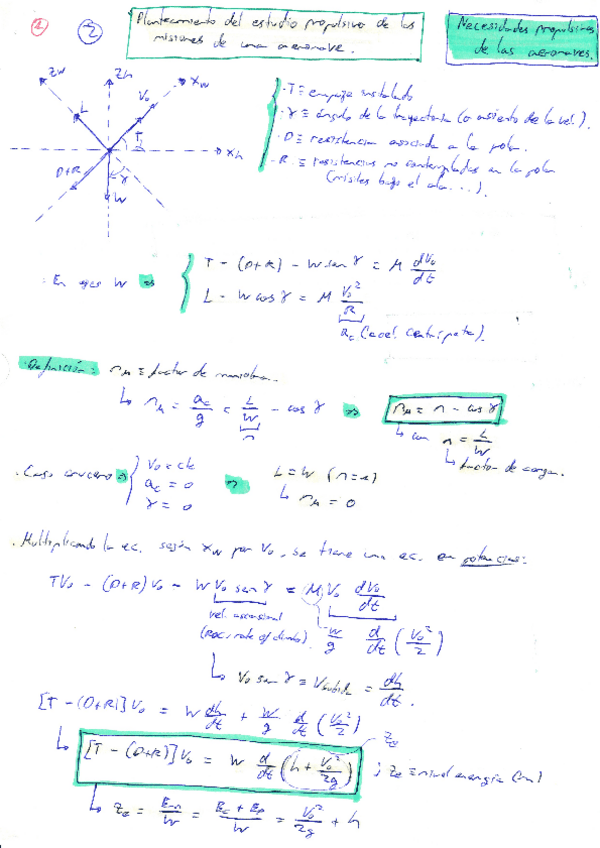 2
Planteamiento del estudio propulsivo de las
misiones de una aeronave.
Necesidades propulsivas
de las aeronaves.
Zw
Zh
Xw
V₀
L
Xh
D+R
γ
W
· T ≡ empuje instalado
· γ ≡ ángulo de la trayectoria (o asiento de la vel.).
· D ≡ resistencia asociada a la polar.
· R ≡ resistencias no contempladas en la polar
(misiles bajo el ala...).
· En ejes W ⇒
T - (D+R) - W sen γ = M dV₀/dt
L - W cos γ = M V₀²/R
a_c (acel. centrípeta).
· Definición: n_M ≡ factor de maniobra.
↳ n_M = a_c/g = L/W - cos γ ⇒ n_M = n - cos γ
n
↳ con n = L/W
↳ factor de carga.
· Caso crucero ⇒ { V₀ = cte
a_c = 0
γ = 0
⇒ L = W (n = 1)
↳ n_M = 0
· Multiplicando la ec. según Xw por V₀, se tiene una ec. en potencias:
TV₀ - (D+R)V₀ - W V₀ sen γ = M V₀ dV₀/dt
vel. ascensional
(ROC, rate of climb).
W/g d/dt (V₀²/2)
↳ V₀ sen γ ≡ Vsubida = dh/dt.
[T - (D+R)]V₀ = W dh/dt + W/g d/dt (V₀²/2)
↳ [T - (D+R)]V₀ = W d/dt (h + V₀²/2g) ; z_e ≡ nivel energía (m)
z_e
↳ z_e = E_m/W = (E_c + E_p)/W = V₀²/2g + h